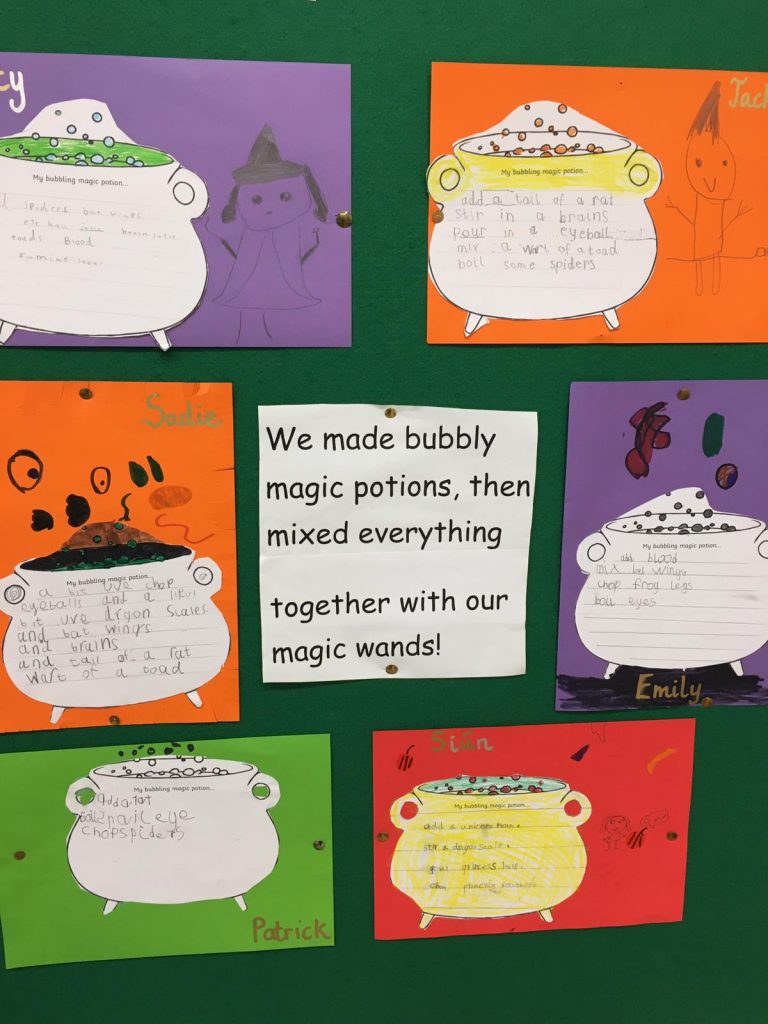 cy
My bubbling magic potion...
spiders bat wings
eye ball juice brain juice
toads Blood
Jack
My bubbling magic potion...
add a tail of a rat
stir in a brains
pour in a eyeball
mix a wart of a toad
boil some spiders
Sadie
My bubbling magic potion...
a bit uve chop
eyeballs and a litul
bit uve drgon scales
and bat wings
and brains
and tail of a rat
wart of a toad
We made bubbly
magic potions, then
mixed everything
together with our
magic wands!
My bubbling magic potion...
add blood
mix bat wings
chop frog legs
boil eyes
Emily
My bubbling magic potion...
snail eye
chop spiders
Patrick
Siân
My bubbling magic potion...
add a unicorn horn.
stir a drgon scale.
princess hair.
feathers